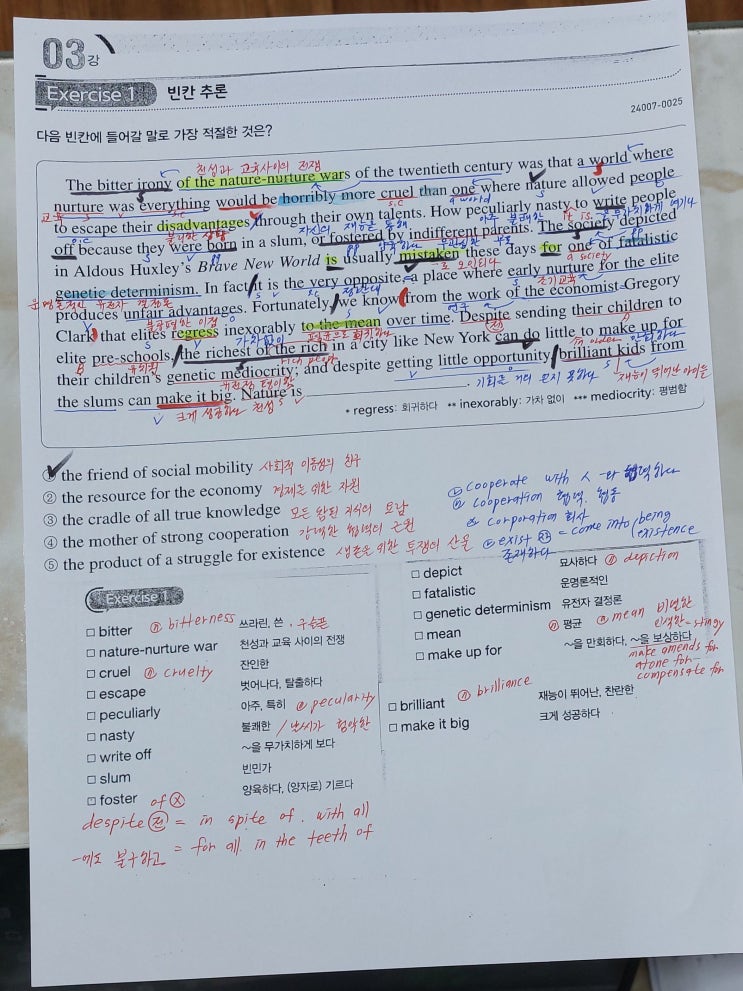 03강
Exercise 1 빈칸 추론
24007-0025
다음 빈칸에 들어갈 말로 가장 적절한 것은?
천성과 교육사이의 전쟁
The bitter irony of the nature-nurture wars of the twentieth century was that a world where
nurture was everything would be horribly more cruel than one where nature allowed people
교육 s.c a world
to escape their disadvantages through their own talents. How peculiarly nasty to write people
자신의 재능을 통해 아주 불쾌한 it is
off because they were born in a slum, or fostered by indifferent parents. The society depicted
무관심한 부모
in Aldous Huxley's Brave New World is usually mistaken these days for one of fatalistic
로 오인되다 a society
genetic determinism. In fact it is the very opposite – a place where early nurture for the elite
운명론적인 유전자 결정론 정반대 조기교육
produces unfair advantages. Fortunately, we know from the work of the economist Gregory
불공평한 이점
Clark that elites regress inexorably to the mean over time. Despite sending their children to
가차없이 평균으로 회귀하다
elite pre-schools, the richest of the rich in a city like New York can do little to make up for
유치원 rich people in order
their children's genetic mediocrity; and despite getting little opportunity, brilliant kids from
유전적 평범함 재능이 뛰어난 아이들
the slums can make it big. Nature is ______________________.
크게 성공하다 천성
* regress: 회귀하다 ** inexorably: 가차 없이 *** mediocrity: 평범함
① the friend of social mobility 사회적 이동성의 친구
② the resource for the economy 경제를 위한 자원
③ the cradle of all true knowledge 모든 참된 지식의 요람
④ the mother of strong cooperation 강력한 협력의 근원
⑤ the product of a struggle for existence 생존을 위한 투쟁의 산물
ⓥ cooperate with 사 와 협력하다
ⓝ cooperation 협력, 협동
& corporation 회사
ⓥ exist = come into being
존재하다 existence
Exercise 1
□ bitter ⓝ bitterness 쓰라린, 쓴, 구슬픈
□ nature-nurture war 천성과 교육 사이의 전쟁
□ cruel ⓝ cruelty 잔인한
□ escape 벗어나다, 탈출하다
□ peculiarly 아주, 특히 ⓝ pecularity
□ nasty 불쾌한 / 날씨가 험악한
□ write off ~을 무가치하게 보다
□ slum 빈민가
□ foster 양육하다, (양자로) 기르다
□ depict 묘사하다 ⓝ depiction
□ fatalistic 운명론적인
□ genetic determinism 유전자 결정론
□ mean ⓝ 평균 ⓐ mean 비열한
인색한= stingy
□ make up for ~을 만회하다, ~을 보상하다
make amends for
atone for
compensate for
□ brilliant ⓝ brilliance 재능이 뛰어난, 찬란한
□ make it big 크게 성공하다
of ⓧ
despite 전 = in spite of. with all
~에도 불구하고 = for all. in the teeth of